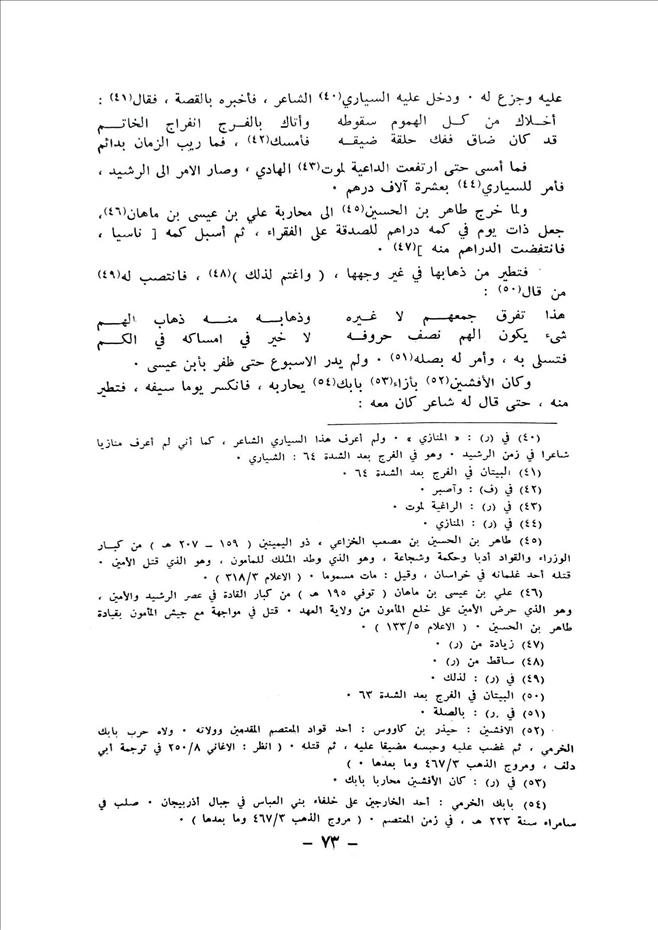 عليه وجزع له ٠ ودخل عليه السياري(٤٠) الشاعر ، فأخبره بالقصة ، فقال(٤١) :
أخلاك من كل الهموم سقوطه وأتاك بالفرج انفراج الخاتم
قد كان ضاق ففك حلقة ضيقه فأمسك(٤٢) ، فما ريب الزمان بدائم
فما أمسى حتى ارتفعت الداعية لموت(٤٣) الهادي ، وصار الامر الى الرشيد ،
فأمر للسياري(٤٤) بعشرة آلاف درهم ٠
ولما خرج طاهر بن الحسين(٤٥) الى محاربة علي بن عيسى بن ماهان(٤٦)،
جعل ذات يوم في كمه دراهم للصدقة على الفقراء ، ثم أسبل كمه [ ناسيا ،
فانتفضت الدراهم منه ](٤٧) ٠
فتطير من ذهابها في غير وجهها ، ( واغتم لذلك )(٤٨) ، فانتصب له(٤٩)
من قال(٥٠) :
هذا تفرق جمعهم لا غيره وذهابه منه ذهاب الهم
شيء يكون الهم نصف حروفه لا خير في امساكه في الكم
فتسلى به ، وأمر له بصله(٥١) ٠ ولم يدر الاسبوع حتى ظفر بأبن عيسى ٠
وكان الأفشين(٥٢) بأزاء(٥٣) بابك(٥٤) يحاربه ، فانكسر يوما سيفه ، فتطير
منه ، حتى قال له شاعر كان معه :
(٤٠) في (ر) : « المنازي » ٠ ولم أعرف هذا السياري الشاعر ، كما أني لم أعرف منازيا
شاعرا في زمن الرشيد ٠ وهو في الفرج بعد الشدة ٦٤ : الشياري ٠
(٤١) البيتان في الفرج بعد الشدة ٦٤ ٠
(٤٢) في (ف) : وآصبر ٠
(٤٣) في (ر) : الراغية لموت ٠
(٤٤) في (ر) : المنازي ٠
(٤٥) طاهر بن الحسين بن مصعب الخزاعي ، ذو اليمينين ( ١٥٩ – ٢٠٧ هـ ) من كبار
الوزراء والقواد أدبا وحكمة وشجاعة ، وهو الذي وطد الملك للمأمون ، وهو الذي قتل الأمين ٠
قتله أحد غلمانه في خراسان ، وقيل : مات مسموما ٠ ( الاعلام ٣١٨/٣ ) ٠
(٤٦) علي بن عيسى بن ماهان ( توفي ١٩٥ هـ ) من كبار القادة في عصر الرشيد والأمين ،
وهو الذي حرض الأمين على خلع المأمون من ولاية العهد ٠ قتل في مواجهة مع جيش المأمون بقيادة
طاهر بن الحسين ٠ ( الاعلام ١٣٣/٥ ) ٠
(٤٧) زيادة من (ر) ٠
(٤٨) ساقط من (ر) ٠
(٤٩) في (ر) : لذلك ٠
(٥٠) البيتان في الفرج بعد الشدة ٦٣ ٠
(٥١) في (ر) : بالصلة ٠
(٥٢) الافشين : حيذر بن كاووس : أحد قواد المعتصم المقدمين وولاته ٠ ولاه حرب بابك
الخرمي ، ثم غضب عليه وحبسه مضيقا عليه ، ثم قتله ٠ ( انظر : الاغاني ٢٥٠/٨ في ترجمة أبي
دلف ، ومروج الذهب ٤٦٧/٣ وما بعدها ٠ )
(٥٣) في (ر) : كان الأفشين محاربا بابك ٠
(٥٤) بابك الخرمي : أحد الخارجين على خلفاء بني العباس في جبال أذربيجان ٠ صلب في
سامراء سنة ٢٢٣ هـ ، في زمن المعتصم ٠ ( مروج الذهب ٤٦٧/٣ وما بعدها ) ٠
– ٧٣ –